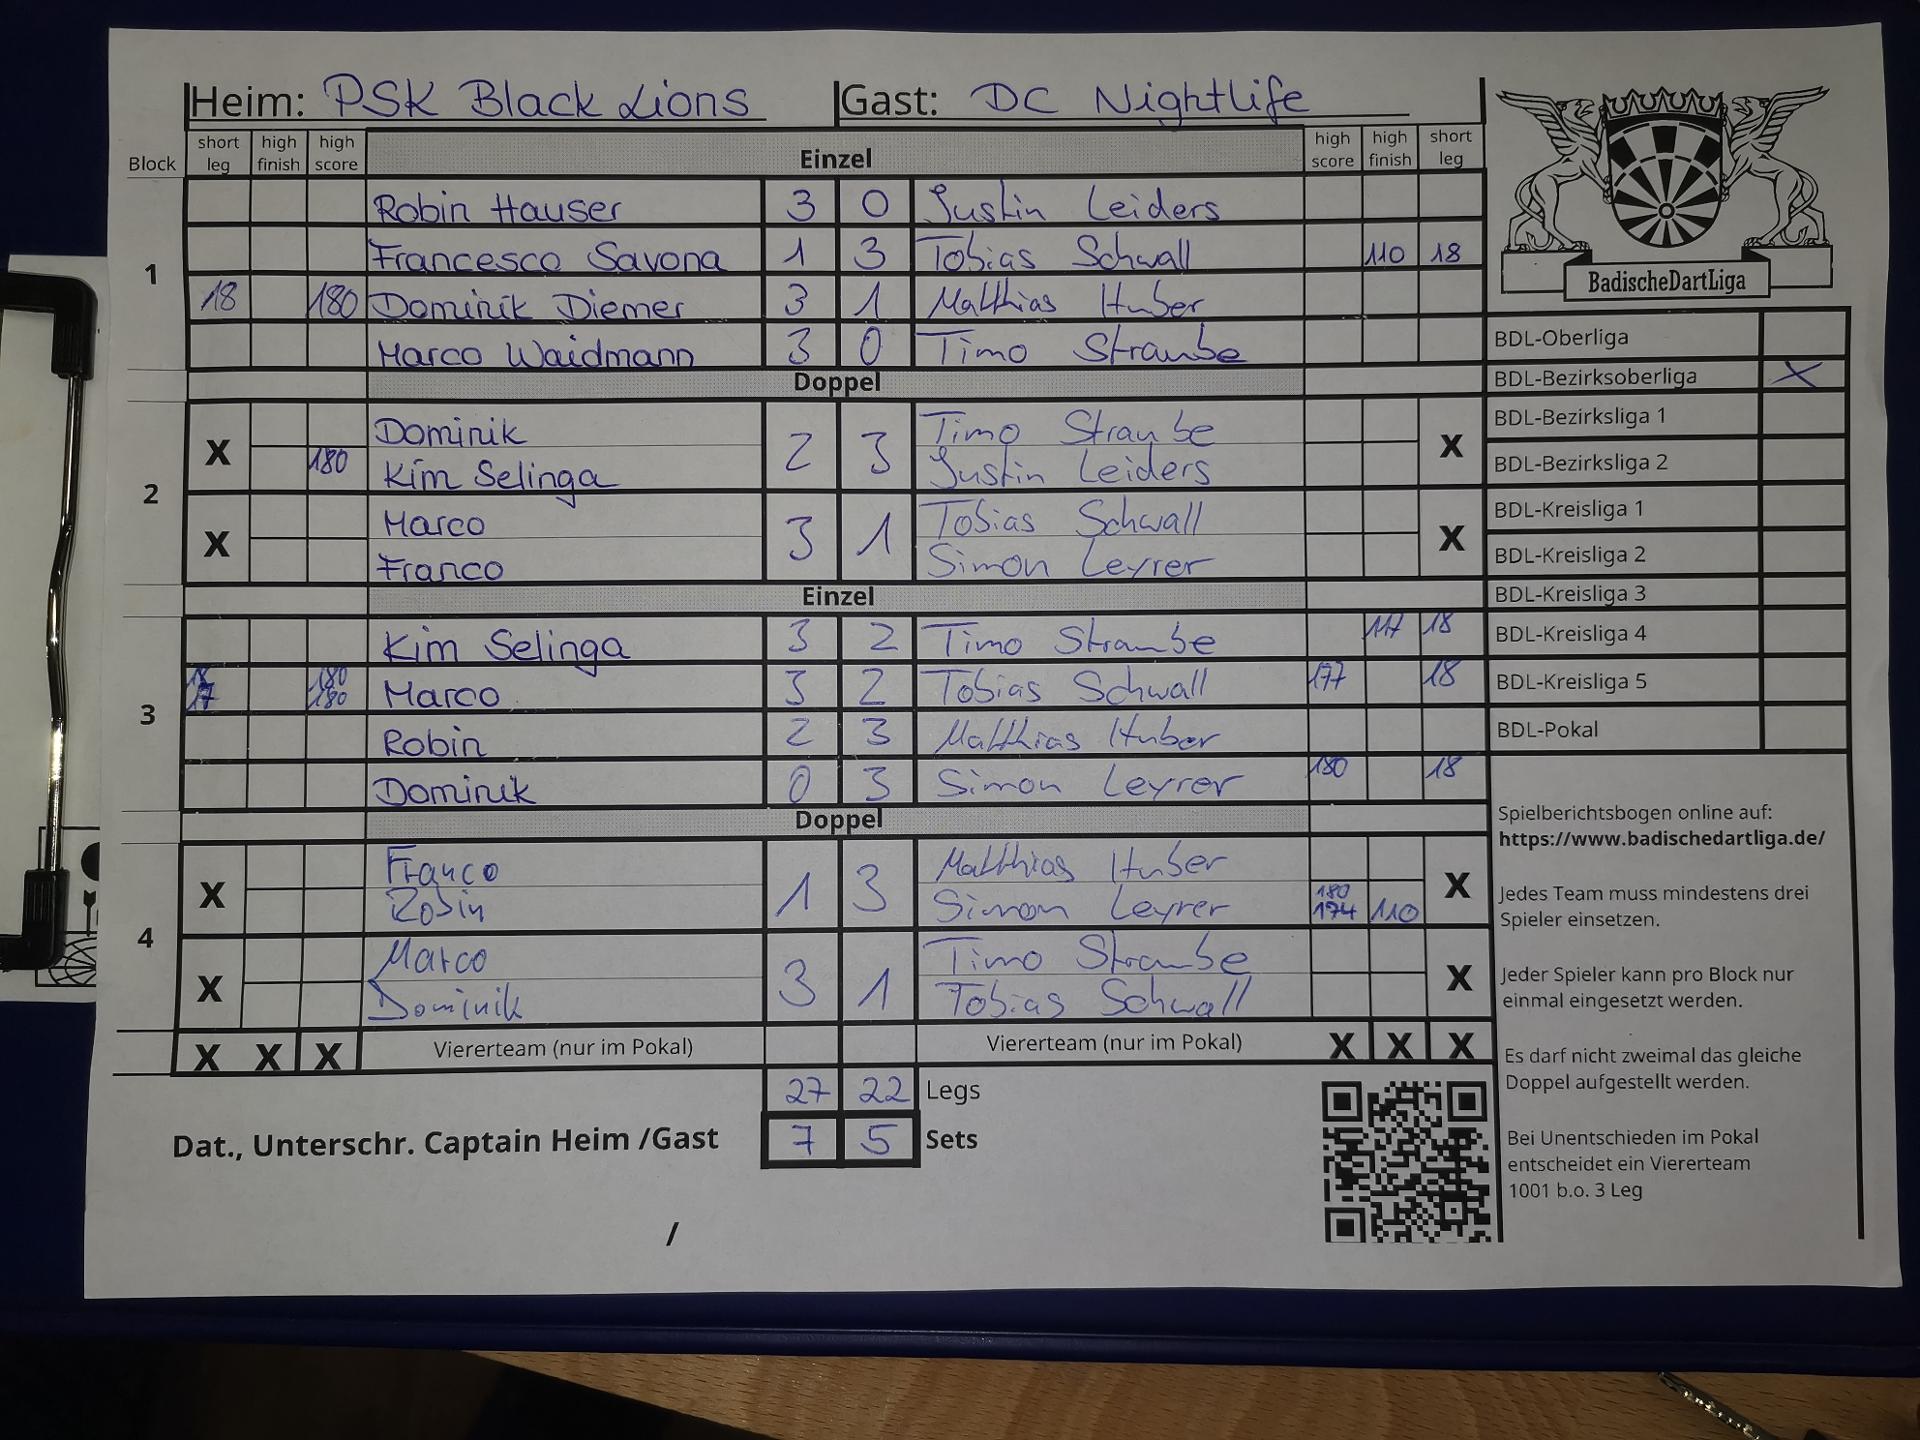 Heim: PSK Black Lions Gast: DC Nightlife
Block short leg high finish high score Einzel high score high finish short leg
1
Robin Hauser 3 0 Justin Leiders
Francesco Savona 1 3 Tobias Schwall 110 18
18 180 Dominik Diemer 3 1 Matthias Huber
Marco Waidmann 3 0 Timo Straube
Doppel
2
X Dominik 2 3 Timo Straube X
180 Kim Selinga Justin Leiders
X Marco 3 1 Tobias Schwall X
Franco Simon Leyrer
Einzel
3
Kim Selinga 3 2 Timo Straube 117 18
18 180
17 180 Marco 3 2 Tobias Schwall 177 18
Robin 2 3 Matthias Huber
Dominik 0 3 Simon Leyrer 180 18
Doppel
4
X Franco 1 3 Matthias Huber X
Robin Simon Leyrer 180
174 110
X Marco 3 1 Timo Straube X
Dominik Tobias Schwall
X X X Viererteam (nur im Pokal) Viererteam (nur im Pokal) X X X
27 22 Legs
Dat., Unterschr. Captain Heim /Gast 7 5 Sets
/
BadischeDartLiga
BDL-Oberliga
BDL-Bezirksoberliga X
BDL-Bezirksliga 1
BDL-Bezirksliga 2
BDL-Kreisliga 1
BDL-Kreisliga 2
BDL-Kreisliga 3
BDL-Kreisliga 4
BDL-Kreisliga 5
BDL-Pokal
Spielberichtsbogen online auf:
https://www.badischedartliga.de/
Jedes Team muss mindestens drei
Spieler einsetzen.
Jeder Spieler kann pro Block nur
einmal eingesetzt werden.
Es darf nicht zweimal das gleiche
Doppel aufgestellt werden.
Bei Unentschieden im Pokal
entscheidet ein Viererteam
1001 b.o. 3 Leg